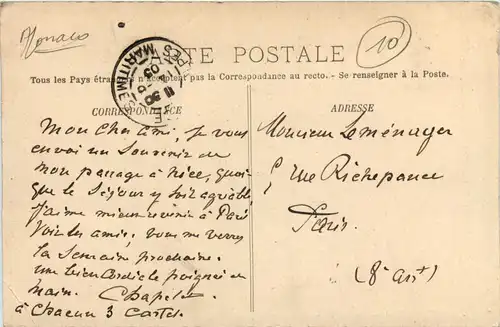 Monaco
10
CARTE POSTALE
Tous les Pays étrangers n'acceptent pas la Correspondance au recto. - Se renseigner à la Poste.
MARITIMES
CORRESPONDANCE
Mon cher ami, je vous
envoi un Souvenir de
mon passage à Nice, quoi
que le Séjour y soit agréable
J'aime mieux revenir à Paris
voir les amis. vous me verrez
la Semaine prochaine.
une bien cordiale poignée de
main.
à chacun 3 cartes.
ADRESSE
Monsieur Leménager
5 rue Richepance
Paris.
(8e arrt)